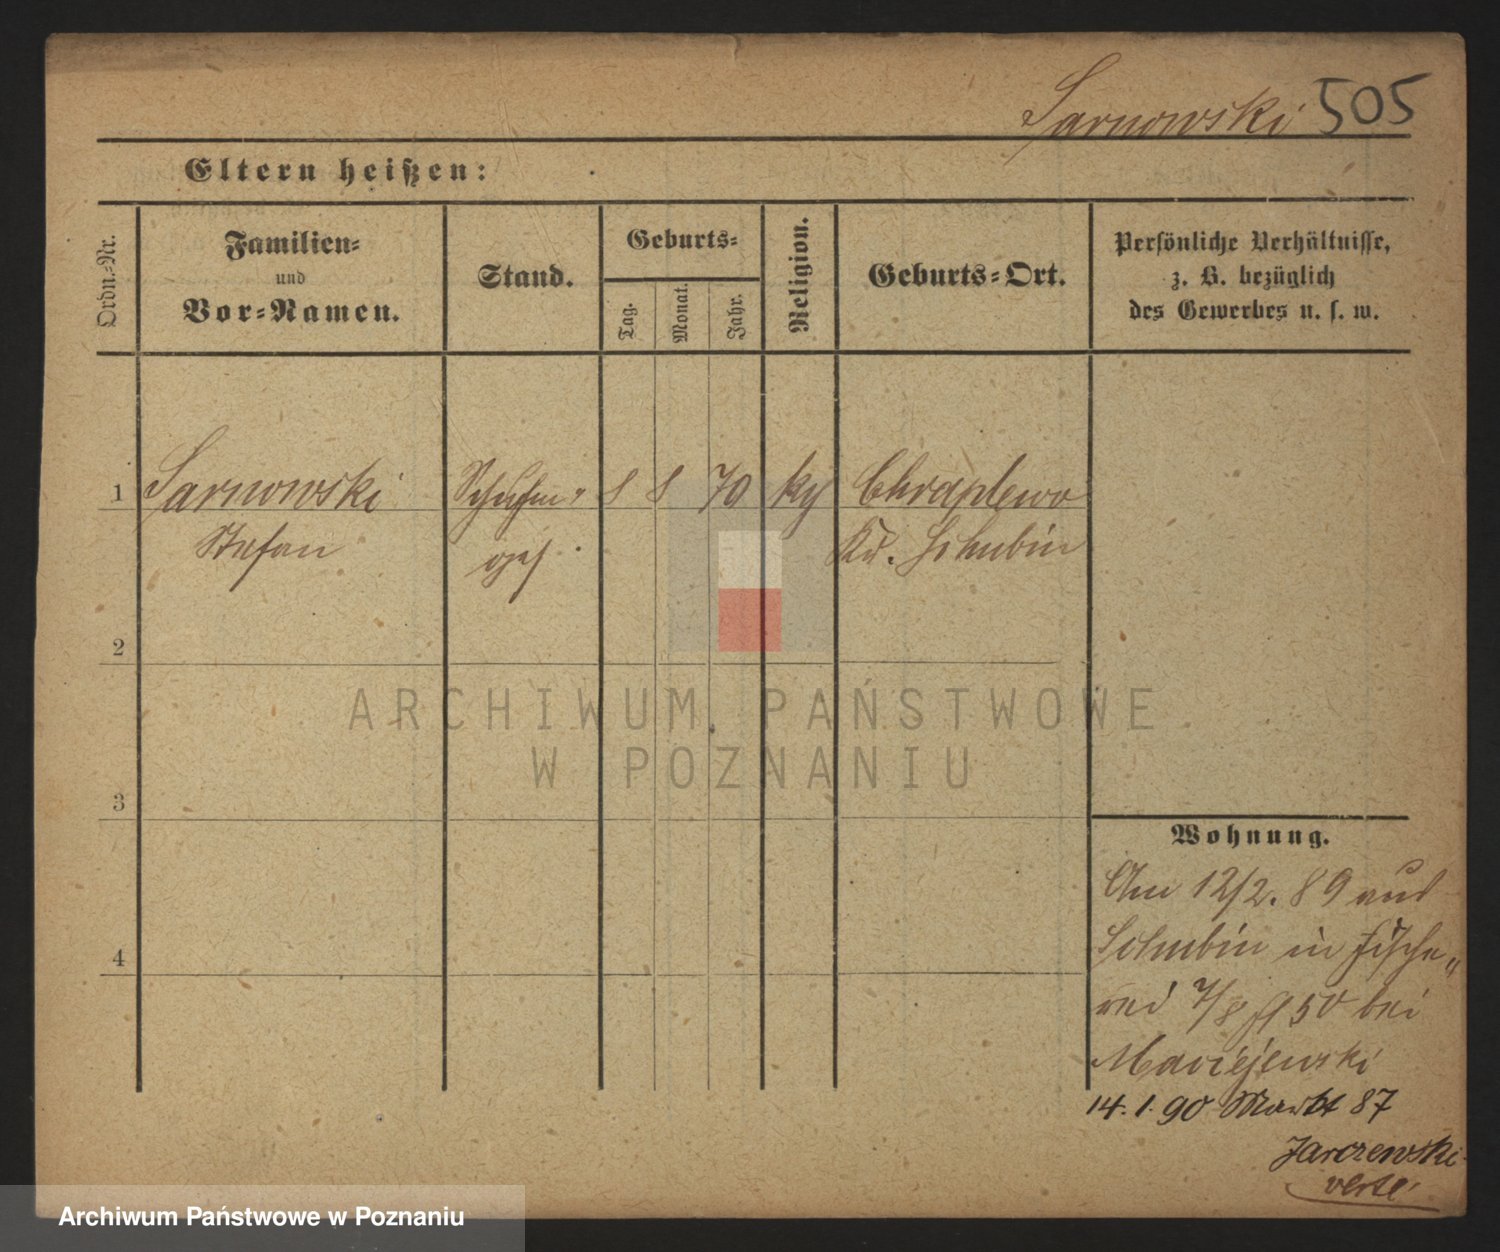 Sarnowski 505
Eltern heißen:
Ordn.-Nr.
Familien-
und
Vor-Namen.
Stand.
Geburts-
Tag.
Monat.
Jahr.
Religion.
Geburts-Ort.
Persönliche Verhältnisse,
z. B. bezüglich
des Gewerbes u. s. w.
1 Sarnowski Schuhm. 8 8 70 Chraplewo
Stefan Kr. Schubin
2
3
4
Wohnung.
Am 12/2. 89 aus
Schubin in Fische„
rei 50 bei
Maciejewski
14. 1. 90 Markt 87
Jarczewski
verte
ARCHIWUM PAŃSTWOWE
W POZNANIU
Archiwum Państwowe w Poznaniu